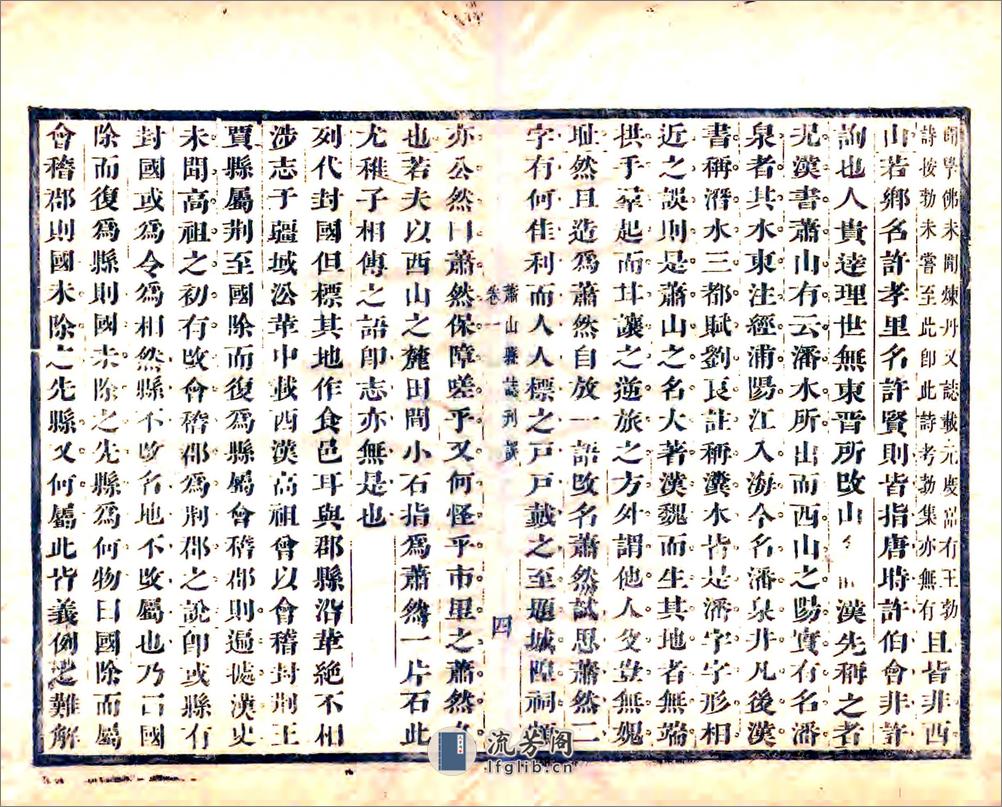 師學佛未聞煉丹又誌載元度富有王勃
詩按勃未嘗至此卽此詩考勃集亦無有
且皆非西
山若鄉名許孝里名許賢則皆指唐時許伯會非許
詢也人貴達理世無東晉所改山 漢先稱之者
况漢書蕭山有云潘水所出而西山之陽實有名潘
泉者其水東注經浦陽江入海今名潘泉井凡後漢
書稱潛水三都賦劉良註稱瀵水皆是潘字字形相
近之誤則是蕭山之名大著漢魏而生其地者無端
拱手羣起而廾讓之逆旅之方外謂他人父豈無媿
耻然且造爲蕭然自放一語改名蕭然試思蕭然二
字有何佳利而人人標之戸戸戴之至題城隍祠額
蕭山縣誌刊誤
卷一
四
亦公然曰蕭然保障嗟乎又何怪乎市里之蕭然
也若夫以西山之麓田間小石指爲蕭然一片石此
尤稚子相傳之語卽志亦無是也
列代封國但標其地作食邑耳與郡縣沿革絶不相
涉志于疆域沿革中載西漢高祖曾以會稽封荆王
賈縣屬荆至國除而復爲縣屬會稽郡則遍攷漢史
未聞高祖之初有改會稽郡爲荆郡之說卽或縣有
封國或爲令爲相然縣不改名地不改屬也乃言國
除而復爲縣則國未除之先縣爲何物曰國除而屬
會稽郡則國未除之先縣又何屬此皆義例之難解
流芳阁
lfglib.cn